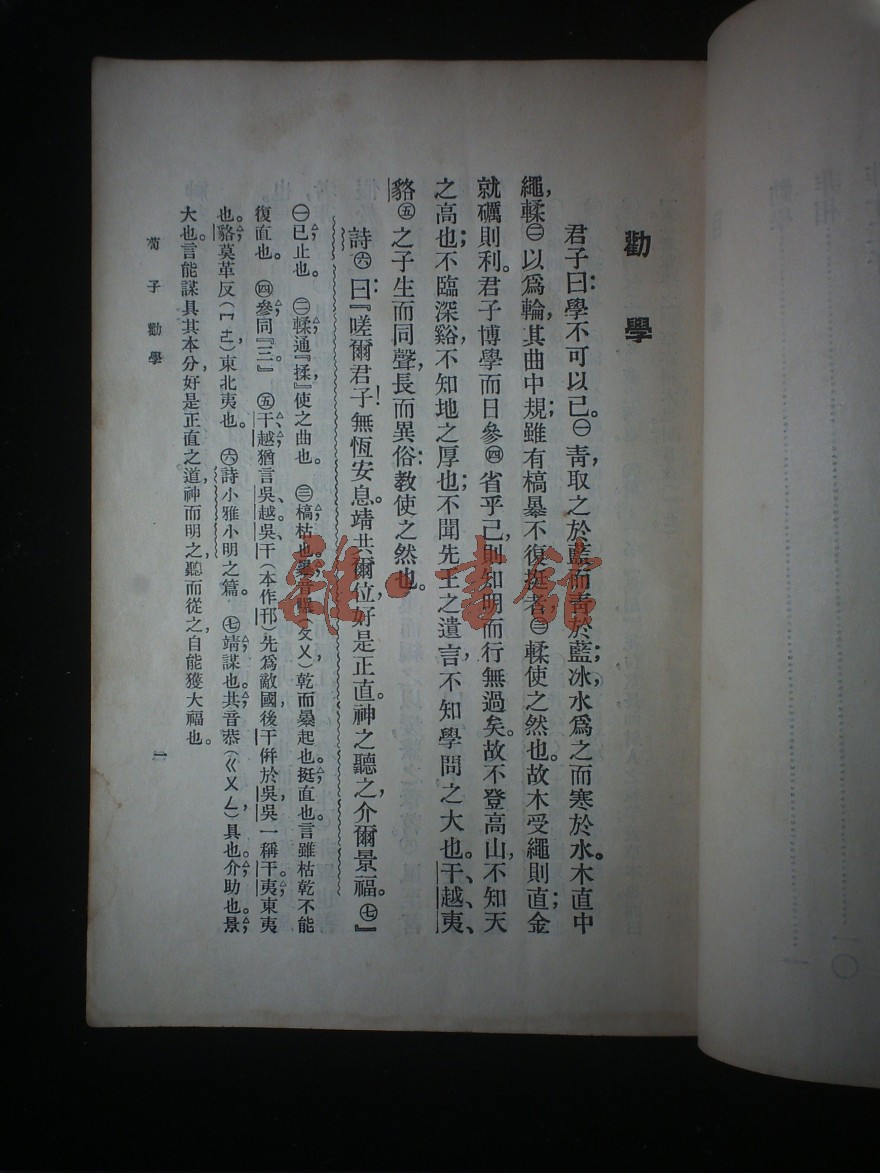 勸學
君子曰：學不可以已。㊀靑，取之於藍而靑於藍；冰，水爲之而寒於水。木直中
繩，輮㊁以爲輪，其曲中規；雖有槁暴不復挺者，㊂輮使之然也。故木受繩則直；金
就礪則利。君子博學而日參㊃省乎己，則知明而行無過矣。故不登高山，不知天
之高也；不臨深谿，不知地之厚也；不聞先王之遺言，不知學問之大也。干、越、夷、
貉㊄之子生而同聲，長而異俗：教使之然也。
詩㊅曰：『嗟爾君子！無恆安息。靖共爾位，好是正直。神之聽之，介爾景福。㊆』
㊀已，止也。 ㊁輮通『揉，』使之曲也。 ㊂槁，枯也。暴音曝（ㄆㄨ，）乾而暴起也。挺，直也。言雖枯乾不能
復直也。 ㊃參，同『三。』 ㊄干、越，猶言吳、越。吳、干（本作邗）先爲敵國，後干倂於吳，吳一稱干。夷，東夷
也。貉，莫革反（ㄇㄛ，）東北夷也。 ㊅詩小雅小明之篇。 ㊆靖，謀也。共音恭（ㄍㄨㄥ，）具也。介，助也。景，
大也。言能謀具其本分，好是正直之道，神而明之，聽而從之，自能獲大福也。
荀子 勸學
一
雜·書館
非相
勸學
一〇
一